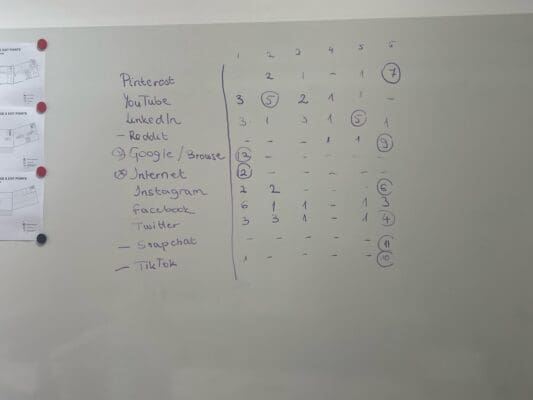 1 2 3 4 5 6
Pinterest 2 1 - 1 7
YouTube 3 5 2 1 1 -
LinkedIn 3 1 3 1 5 1
- Reddit - - - 1 1 9
Google / Browse 12 - - - - -
Internet 12 - - - - -
Instagram 2 2 - - - 6
Facebook 6 1 1 - 1 3
Twitter 3 3 1 - 1 4
- Snapchat - - - - - 11
- TikTok 1 - - - - 10